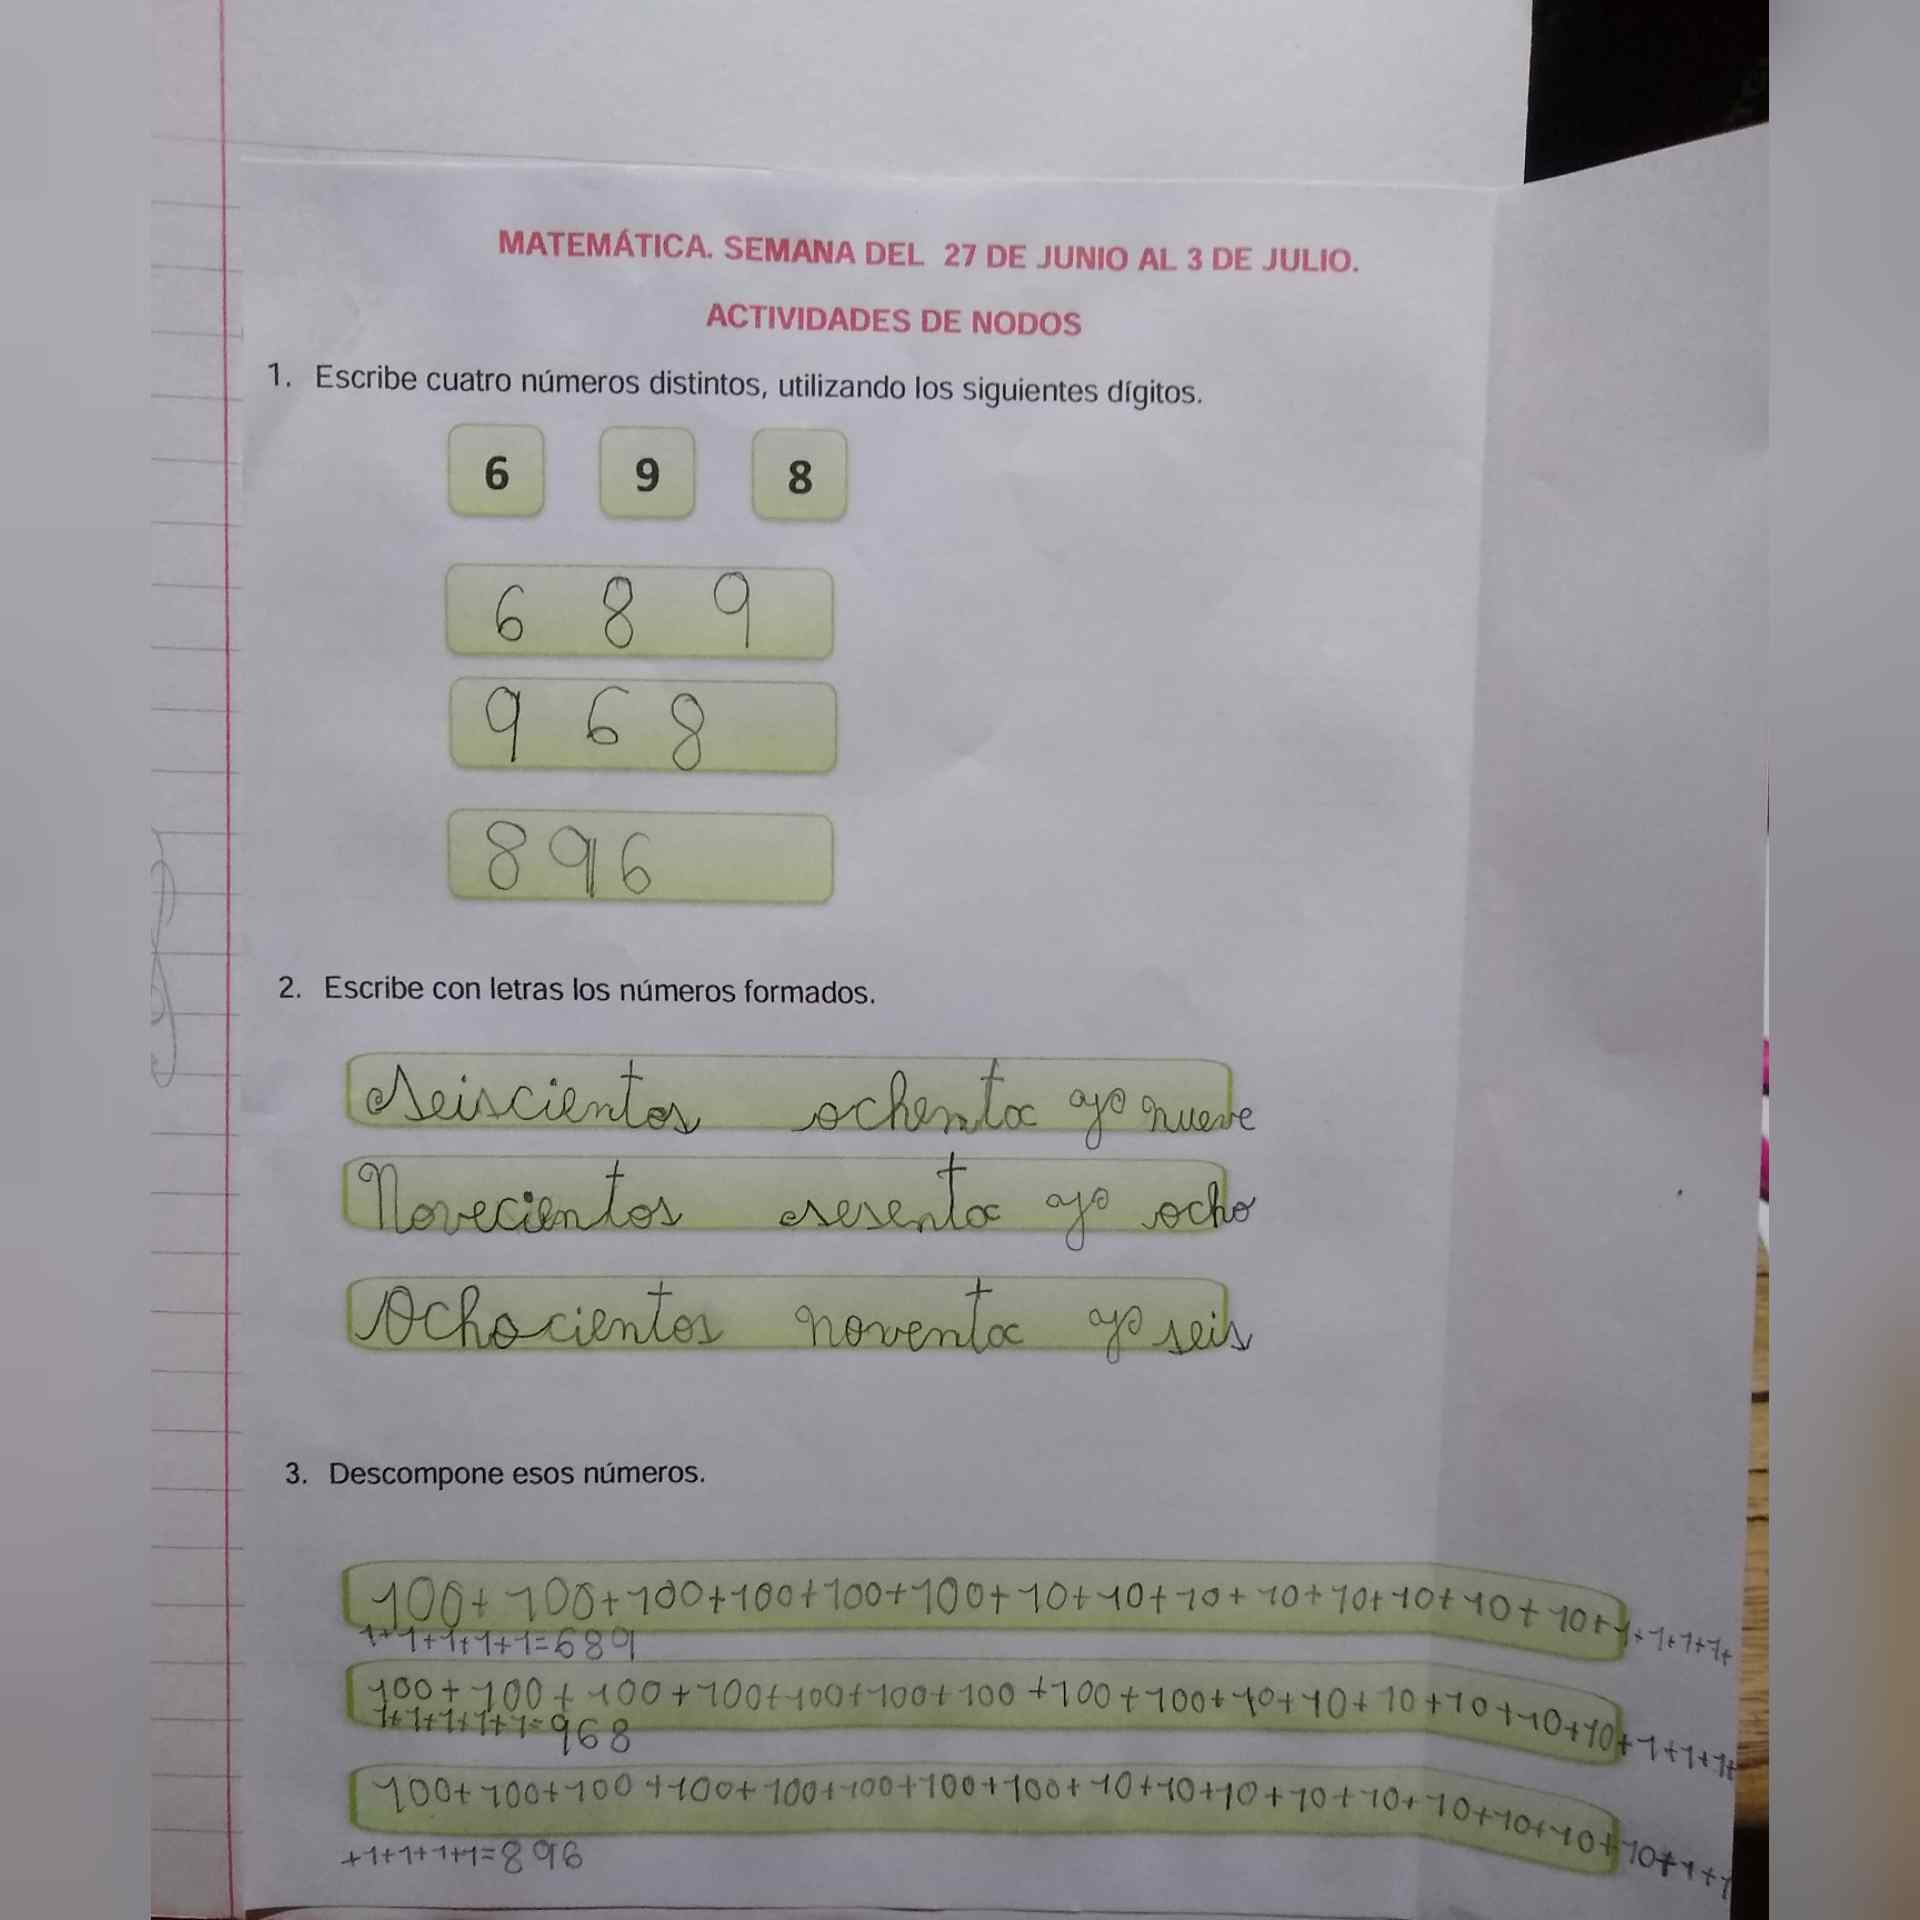 MATEMÁTICA. SEMANA DEL 27 DE JUNIO AL 3 DE JULIO.
ACTIVIDADES DE NODOS
1. Escribe cuatro números distintos, utilizando los siguientes dígitos.
6 9 8
6 8 9
9 6 8
896
2. Escribe con letras los números formados.
Seiscientos ochenta y nueve
Novecientos sesenta y ocho
Ochocientos noventa y seis
3. Descompone esos números.
100+100+100+100+100+100+10+10+10+10+10+10+10+10+1+1+1+1+
1+1+1+1+1=689
100+100+100+100+100+100+100+100+100+10+10+10+10+10+10+1+1+1+
1+1+1+1+1=968
100+100+100+100+100+100+100+100+10+10+10+10+10+10+10+10+10+1+1
+1+1+1+1=896